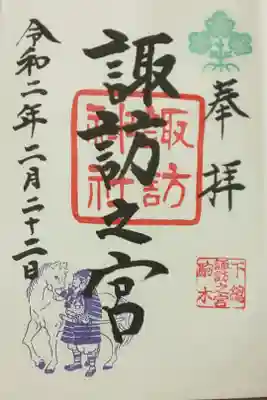 奉拝
諏訪之宮
諏訪
神社
令和二年二月二十二日
下總
諏訪之宮
駒木